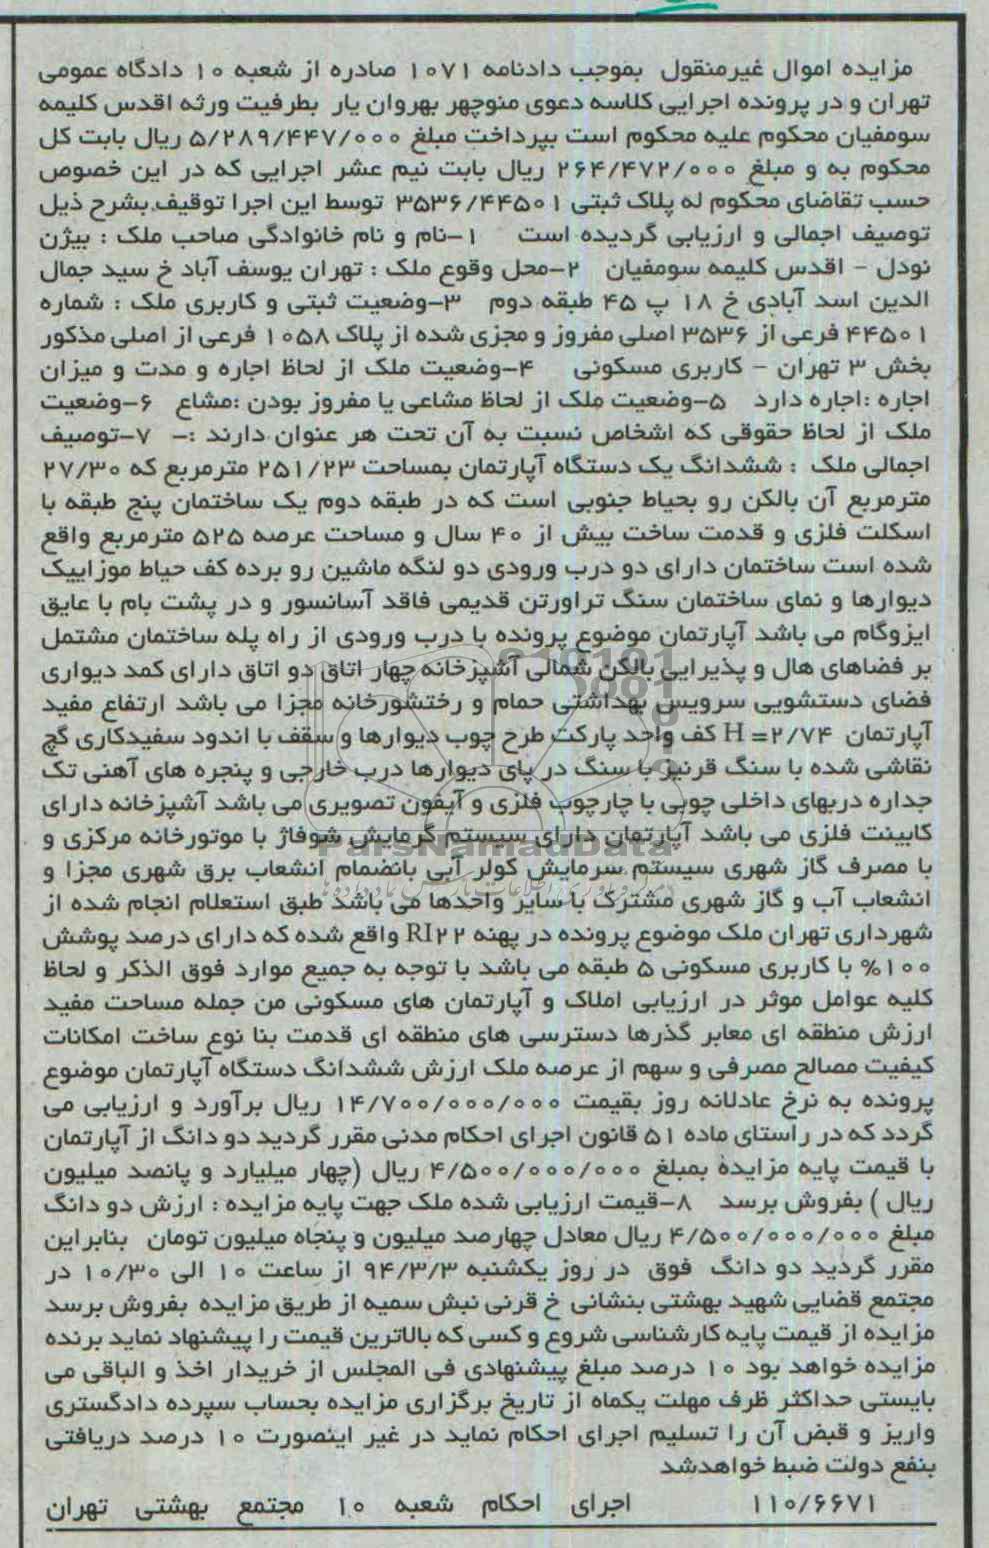 مزایده اموال غیرمنقول بموجب دادنامه ۱۰۷۱ صادره از شعبه ۱۰ دادگاه عمومی
تهران و در پرونده اجرایی کلاسه دعوی منوچهر بهروان یار بطرفیت ورثه اقدس کلیمه
سومفیان محکوم علیه محکوم است بپرداخت مبلغ ۵/۲۸۹/۴۴۷/۰۰۰ ریال بابت کل
محکوم به و مبلغ ۲۶۴/۴۷۲/۰۰۰ ریال بابت نیم عشر اجرایی که در این خصوص
حسب تقاضای محکوم له پلاک ثبتی ۳۵۳۶/۴۴۵۰۱ توسط این اجرا توقیف.بشرح ذیل
توصیف اجمالی و ارزیابی گردیده است ۱-نام و نام خانوادگی صاحب ملک : بیژن
نودل - اقدس کلیمه سومفیان ۲-محل وقوع ملک : تهران یوسف آباد خ سید جمال
الدین اسد آبادی خ ۱۸ پ ۴۵ طبقه دوم ۳-وضعیت ثبتی و کاربری ملک : شماره
۴۴۵۰۱ فرعی از ۳۵۳۶ اصلی مفروز و مجزی شده از پلاک ۱۰۵۸ فرعی از اصلی مذکور
بخش ۳ تهران - کاربری مسکونی ۴-وضعیت ملک از لحاظ اجاره و مدت و میزان
اجاره :اجاره دارد ۵-وضعیت ملک از لحاظ مشاعی یا مفروز بودن :مشاع ۶-وضعیت
ملک از لحاظ حقوقی که اشخاص نسبت به آن تحت هر عنوان دارند :- ۷-توصیف
اجمالی ملک : ششدانگ یک دستگاه آپارتمان بمساحت ۲۵۱/۲۳ مترمربع که ۲۷/۳۰
مترمربع آن بالکن رو بحیاط جنوبی است که در طبقه دوم یک ساختمان پنج طبقه با
اسکلت فلزی و قدمت ساخت بیش از ۴۰ سال و مساحت عرصه ۵۲۵ مترمربع واقع
شده است ساختمان دارای دو درب ورودی دو لنگه ماشین رو برده کف حیاط موزاییک
دیوارها و نمای ساختمان سنگ تراورتن قدیمی فاقد آسانسور و در پشت بام با عایق
ایزوگام می باشد آپارتمان موضوع پرونده با درب ورودی از راه پله ساختمان مشتمل
بر فضاهای هال و پذیرایی بالکن شمالی آشپزخانه چهار اتاق دو اتاق دارای کمد دیواری
فضای دستشویی سرویس بهداشتی حمام و رختشورخانه مجزا می باشد ارتفاع مفید
آپارتمان H =۲/۷۴ کف واحد پارکت طرح چوب دیوارها و سقف با اندود سفیدکاری گچ
نقاشی شده با سنگ قرنیز با سنگ در پای دیوارها درب خارجی و پنجره های آهنی تک
جداره دربهای داخلی چوبی با چارچوب فلزی و آیفون تصویری می باشد آشپزخانه دارای
کابینت فلزی می باشد آپارتمان دارای سیستم گرمایش شوفاژ با موتورخانه مرکزی و
با مصرف گاز شهری سیستم سرمایش کولر آبی بانضمام انشعاب برق شهری مجزا و
انشعاب آب و گاز شهری مشترک با سایر واحدها می باشد طبق استعلام انجام شده از
شهرداری تهران ملک موضوع پرونده در پهنه RI۲۲ واقع شده که دارای درصد پوشش
۱۰۰% با کاربری مسکونی ۵ طبقه می باشد با توجه به جمیع موارد فوق الذکر و لحاظ
کلیه عوامل موثر در ارزیابی املاک و آپارتمان های مسکونی من جمله مساحت مفید
ارزش منطقه ای معابر گذرها دسترسی های منطقه ای قدمت بنا نوع ساخت امکانات
کیفیت مصالح مصرفی و سهم از عرصه ملک ارزش ششدانگ دستگاه آپارتمان موضوع
پرونده به نرخ عادلانه روز بقیمت ۱۴/۷۰۰/۰۰۰/۰۰۰ ریال برآورد و ارزیابی می
گردد که در راستای ماده ۵۱ قانون اجرای احکام مدنی مقرر گردید دو دانگ از آپارتمان
با قیمت پایه مزایده بمبلغ ۴/۵۰۰/۰۰۰/۰۰۰ ریال (چهار میلیارد و پانصد میلیون
ریال ) بفروش برسد ۸-قیمت ارزیابی شده ملک جهت پایه مزایده : ارزش دو دانگ
مبلغ ۴/۵۰۰/۰۰۰/۰۰۰ ریال معادل چهارصد میلیون و پنجاه میلیون تومان بنابراین
مقرر گردید دو دانگ فوق در روز یکشنبه ۹۴/۳/۳ از ساعت ۱۰ الی ۱۰/۳۰ در
مجتمع قضایی شهید بهشتی بنشانی خ قرنی نبش سمیه از طریق مزایده بفروش برسد
مزایده از قیمت پایه کارشناسی شروع و کسی که بالاترین قیمت را پیشنهاد نماید برنده
مزایده خواهد بود ۱۰ درصد مبلغ پیشنهادی فی المجلس از خریدار اخذ و الباقی می
بایستی حداکثر ظرف مهلت یکماه از تاریخ برگزاری مزایده بحساب سپرده دادگستری
واریز و قبض آن را تسلیم اجرای احکام نماید در غیر اینصورت ۱۰ درصد دریافتی
بنفع دولت ضبط خواهدشد
۱۱۰/۶۶۷۱ اجرای احکام شعبه ۱۰ مجتمع بهشتی تهران
ParsNamadData